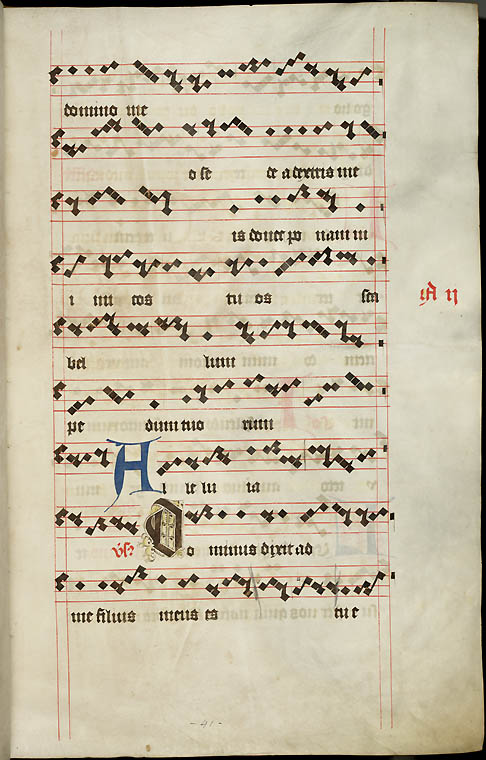 domino me
o se de a dextris me
is donec po nam in
i mi cos tu os sca
bel lum
pe dum tuo rum
A l le lu ia
D o minus dixit ad
me filius meus es tu e
- 41 -